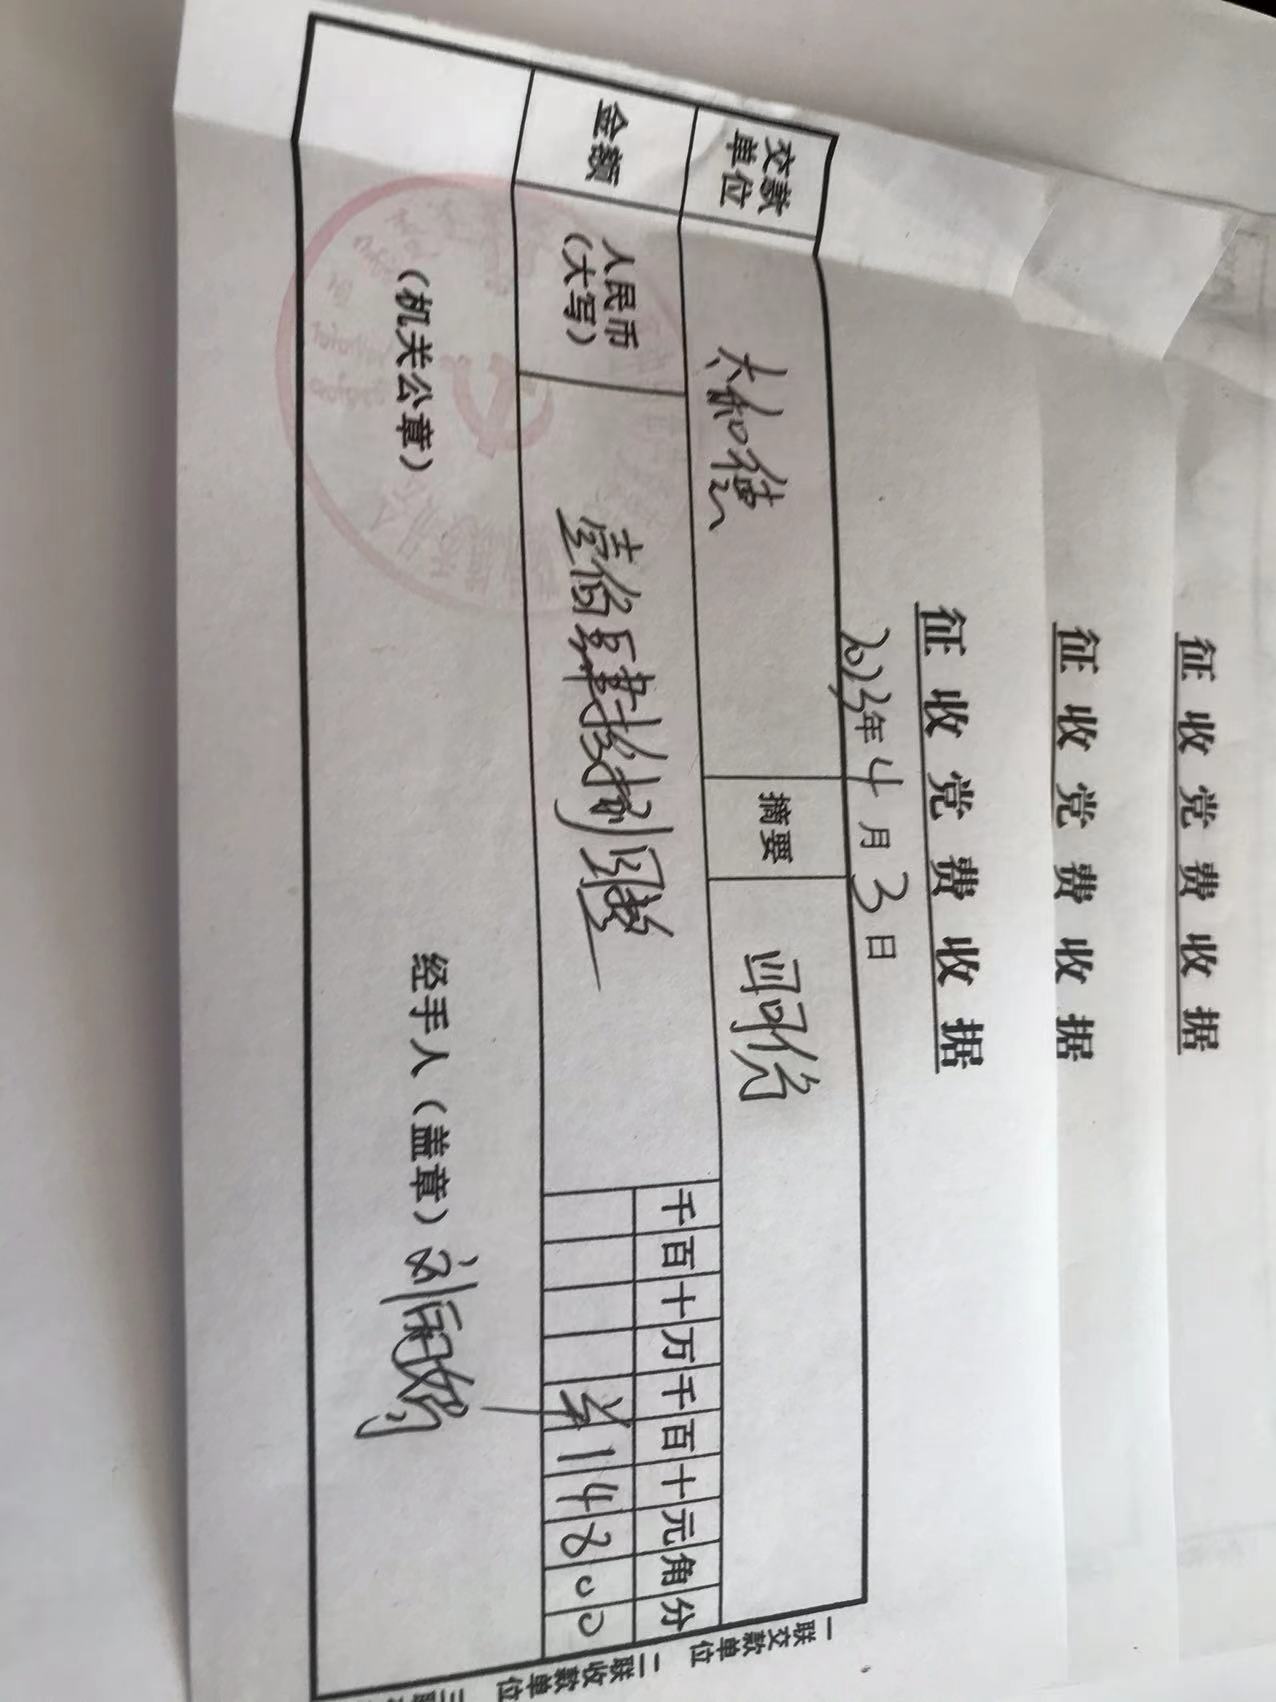 征收党费收据
征收党费收据
征收党费收据
2023年4月3日
交款单位
摘要
金额
人民币（大写）
壹佰肆拾捌圆整
千百十万千百十元角分
¥14800
（机关公章）
经手人（盖章）刘
一联交款单位 二联收款单位 三联